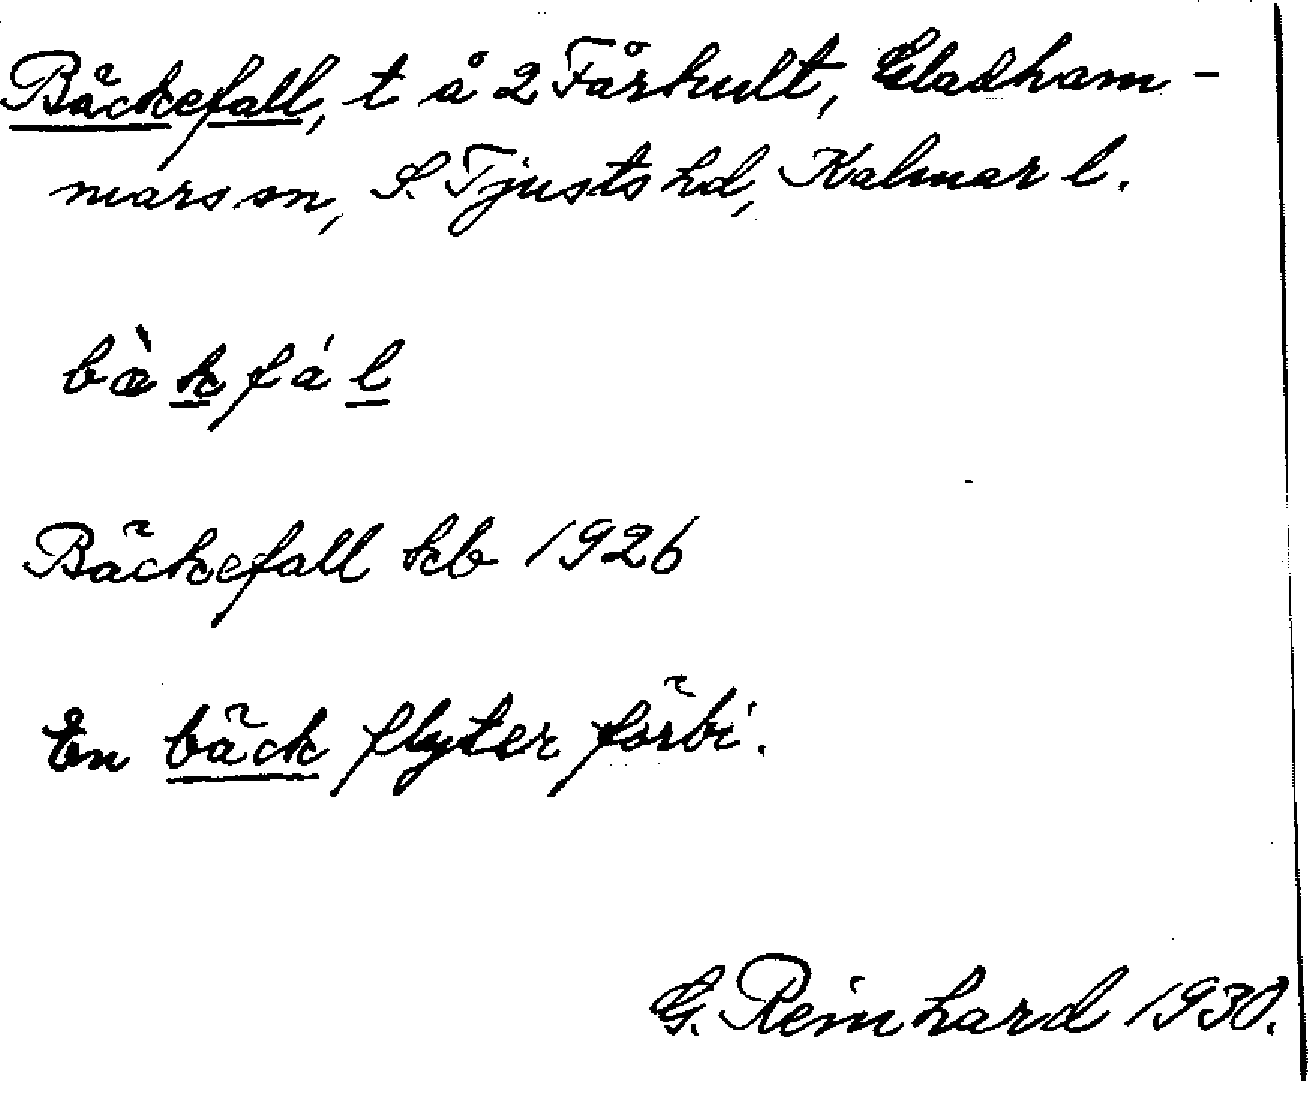 Bäckefall, t å 2 Fårhult, Gladham-
mars sn, S. Tjusts hd, Kalmar l.
bæ̀kfál
Bäckefall kb 1926
En bäck flyter förbi.
G. Reinhard 1930.